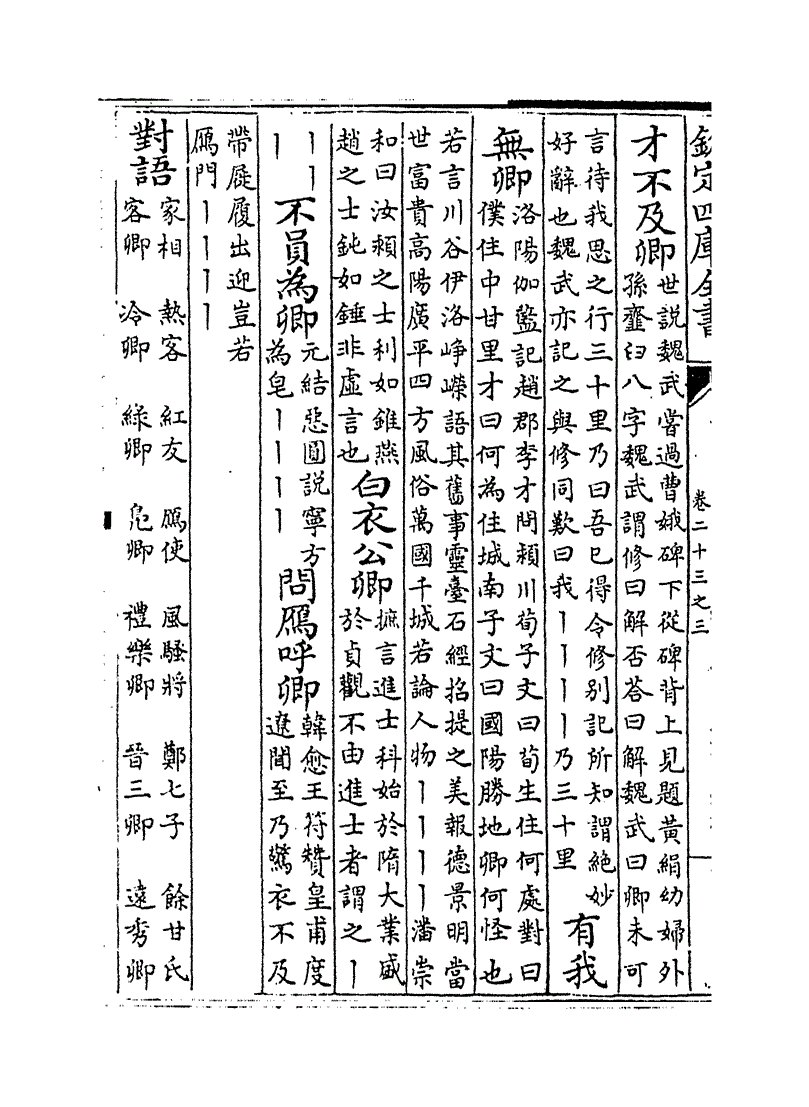 欽定四庫全書
卷二十三之三
才不及卿世說魏武嘗過曹娥碑下從碑背上見題黃絹幼婦外
孫齏臼八字魏武謂修曰解否荅曰解魏武曰卿未可
言待我思之行三十里乃曰吾已得令修别記所知謂絶妙
好辭也魏武亦記之與修同歎曰我丨丨丨丨乃三十里 有我
無卿洛陽伽藍記趙郡李才問頴川荀子文曰荀生住何處對曰
僕住中甘里才曰何為住城南子文曰國陽勝地卿何怪也
若言川谷伊洛崢嶸語其舊事靈臺石經招提之美報德景明當
世富貴高陽廣平四方風俗萬國千城若論人物丨丨丨丨潘崇
和曰汝頴之士利如錐燕
趙之士鈍如錘非虛言也 白衣公卿摭言進士科始於隋大業盛
於貞觀不由進士者謂之丨
丨丨
丨 不員為卿元結惡圓說寧方
為皂丨丨丨丨 問鴈呼卿韓愈王符贊皇甫度
遼聞至乃驚衣不及
帶屣履出迎豈若
鴈門丨丨丨丨
對語家相 熱客 紅友 鴈使 風騷將 鄭七子 餘甘氏
客卿 冷卿 綠卿 鳬卿 禮樂卿 晉三卿 遠秀卿